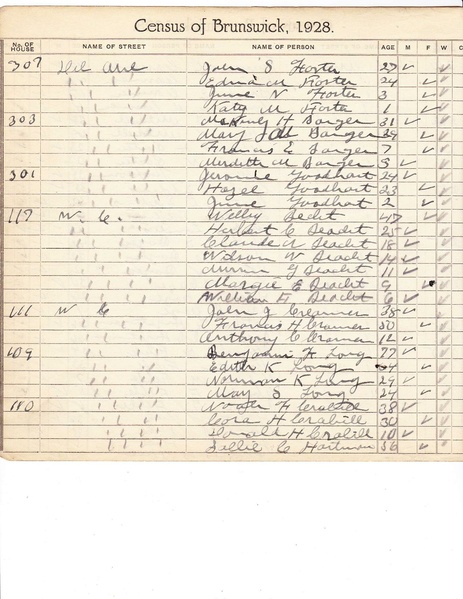 Census of Brunswick, 1928.
No. OF HOUSE NAME OF STREET NAME OF PERSON AGE M F W C
307 Del Ave John S Horter 27
" " " Edna M Horter 24
" " " June V Horter 3
" " " Katy M Horter 1
303 " " H Barger 31
" " " Mary Barger
" " " Francis E Barger 7
" " " Merdith M Barger 5
301 " " Jerome Goodhart 24
" " " Hazel Goodhart 23
" " " June Goodhart 2
117 W. C. Willey Deacht 47
" " " Herbert C Deacht 25
" " " Claude Deacht 18
" " " Wilson W Deacht 14
" " " G Deacht 11
" " " Margie E Deacht 9
" " " William H Deacht 6
111 W C John J Creamer 38
" " " Francis H Cramer 30
" " " Anthony C Cramer 12
109 " " Benjamin F Long 77
" " " Edith K Long
" " " Norman K Long 29
" " " May S Long 24
110 " " H Crabill 38
" " " Cora H Crabill 30
" " " Donald H Crabill 10
" " " Lillie C Hartman 56